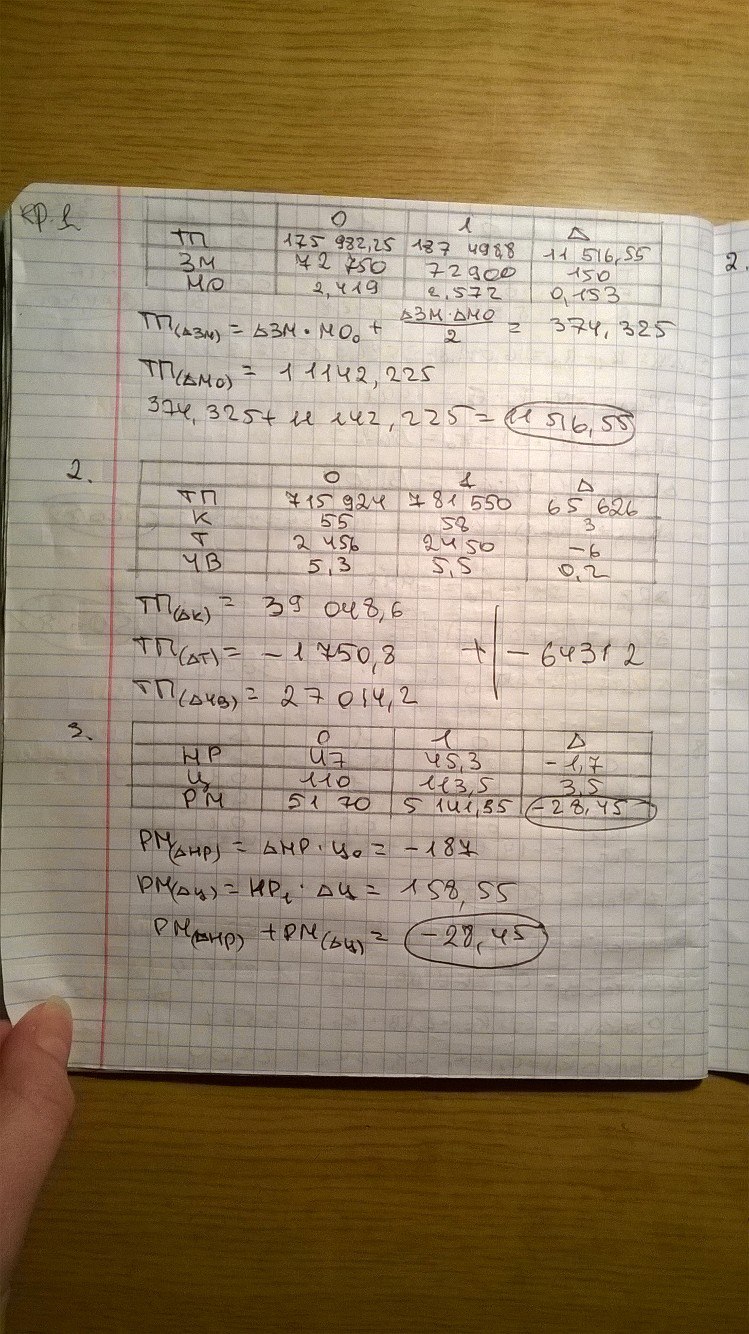 КР. 1
0 1 Δ
ТП 175 982,25 187 498,8 11 516,55
ЗМ 72 750 72900 150
МО 2,419 2,572 0,153
ТП(ΔЗМ) = ΔЗМ · МО₀ + ΔЗМ·ΔМО / 2 = 374,325
ТП(ΔМО) = 11142,225
374,325 + 11 142,225 = 11 516,55
2.
0 1 Δ
ТП 715 924 781 550 65 626
К 55 58 3
Т 2 456 2450 -6
ЧВ 5,3 5,5 0,2
ТП(ΔК) = 39 048,6
ТП(ΔТ) = -1 750,8 + - 64312
ТП(ΔЧВ) = 27 014,2
3.
0 1 Δ
НР 47 45,3 -1,7
Ц 110 113,5 3,5
РМ 5170 5 141,55 -28,45
РМ(ΔНР) = ΔНР · Ц₀ = -187
РМ(ΔЦ) = НР₁ · ΔЦ = 158,55
РМ(ΔНР) + РМ(ΔЦ) = -28,45
2.